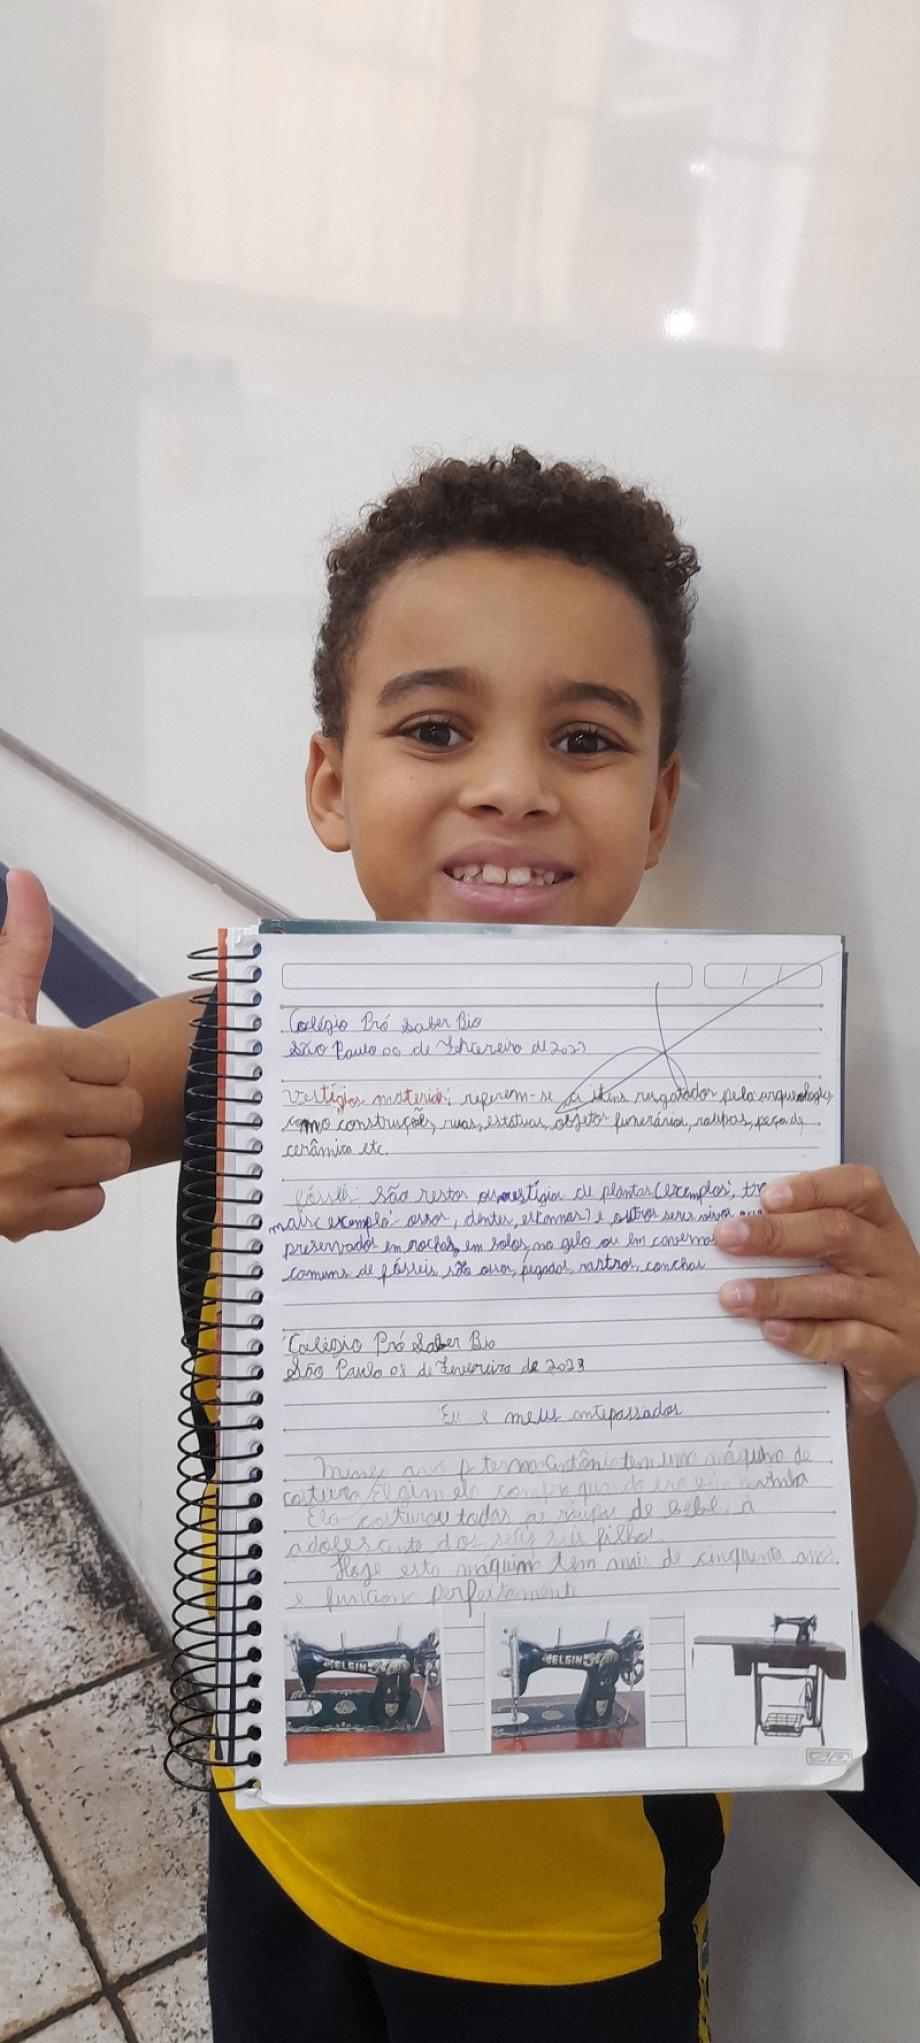 Colégio Pró Saber Bio
São Paulo 00 de Fevereiro de 2023
Vestígios materiais; reperem-se os itens resgatados pela arqueologia,
como construções, ruas, estátuas, objetos funerários, roupas, peça de
cerâmica etc.
fósseis são restos ou vestígios de plantas (exemplos:
mais (exemplo- ossos, dentes, escamas) e outros seres vivos
preservados em rochas, em solos, no gelo ou em cavernas
comuns de fósseis são ossos, pegadas, rastros, conchas
Colégio Pró Saber Bio
São Paulo 08 de Fevereiro de 2023
Eu e meus antepassados
Minha avó paterna Antônia tem uma máquina de
costura Elgim ela compro quando era
Ela costurou todas as roupas de bebê a
adolescente dos seus seis filhos.
Hoje esta máquina tem mais de cinquenta anos.
e funciona perfeitamente
ELGIN
ELGIN